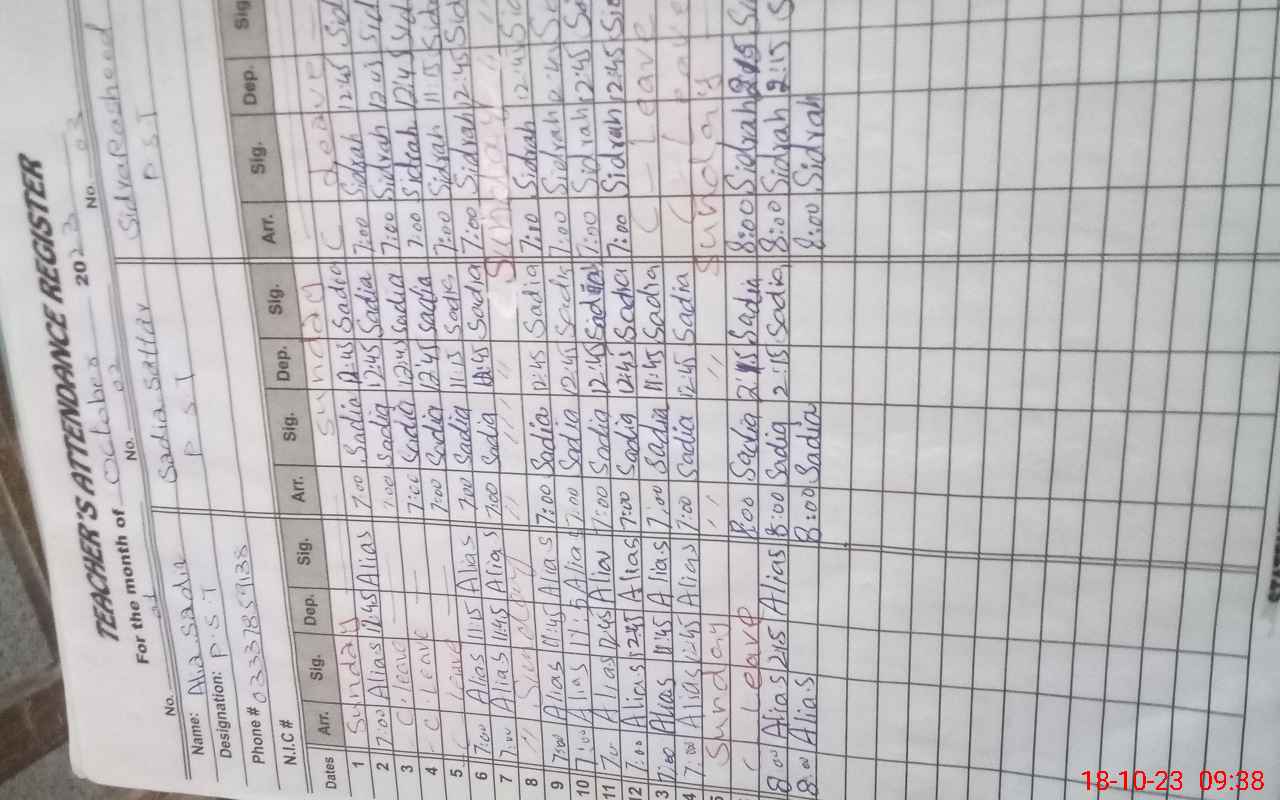 TEACHER'S ATTENDANCE REGISTER
For the month of October 2023
No. No. 02 No. 03
Name: Alia Sadia Sadia Sattar Sidra Rasheed
Designation: P.S.T P S T P S T
Phone # 03337859138
N.I.C #
Dates Arr. Sig. Dep. Sig. Arr. Sig. Dep. Sig. Arr. Sig. Dep. Sig
1 Sunday Sunday
2 7:00 Alias 11:45 Alias 7:00 Sadia 12:45 Sadia C leave
3 C. leave 7:00 Sadia 12:45 Sadia 7:00 Sidrah 12:45 Sid
4 C. Leave 7:00 Sadia 12:45 Sadia 7:00 Sidrah 12:45 Sid
5 C Leave 7:00 Sadia 12:45 Sadia 7:00 Sidrah 12:45 Sid
6 7:00 Alias 11:15 Alias 7:00 Sadia 11:15 Sadia 7:00 Sidrah 11:15 Sid
7 7:00 Alias 11:45 Alias 7:00 Sadia 12:45 Sadia 7:00 Sidrah 12:45 Sid
8 // Sunday // // // // Sunday
9 7:00 Alias 11:45 Alias 7:00 Sadia 12:45 Sadia 7:00 Sidrah 12:45 Si
10 7:00 Alias Alias 7:00 Sadia 12:45 Sadia 7:00 Sidrah 12:45 Si
11 7:00 Alias 12:45 Alias 7:00 Sadia 12:45 Sadia 7:00 Sidrah 12:45 Si
12 7:00 Alias 12:45 Alias 7:00 Sadia 12:45 Sadia 7:00 Sidrah 12:45 Si
3 7:00 Alias 11:45 Alias 7:00 Sadia 11:45 Sadia C Leave
4 7:00 Alias 12:45 Alias 7:00 Sadia 12:45 Sadia C Leave
5 Sunday // // Sunday
C Leave 8:00 Sadia 2:15 Sadia 8:00 Sidrah 2:15 Si
8:00 Alias 2:15 Alias 8:00 Sadia 2:15 Sadia 8:00 Sidrah 2:15 S
8:00 Alias 8:00 Sadia 8:00 Sidrah
18-10-23 09:38